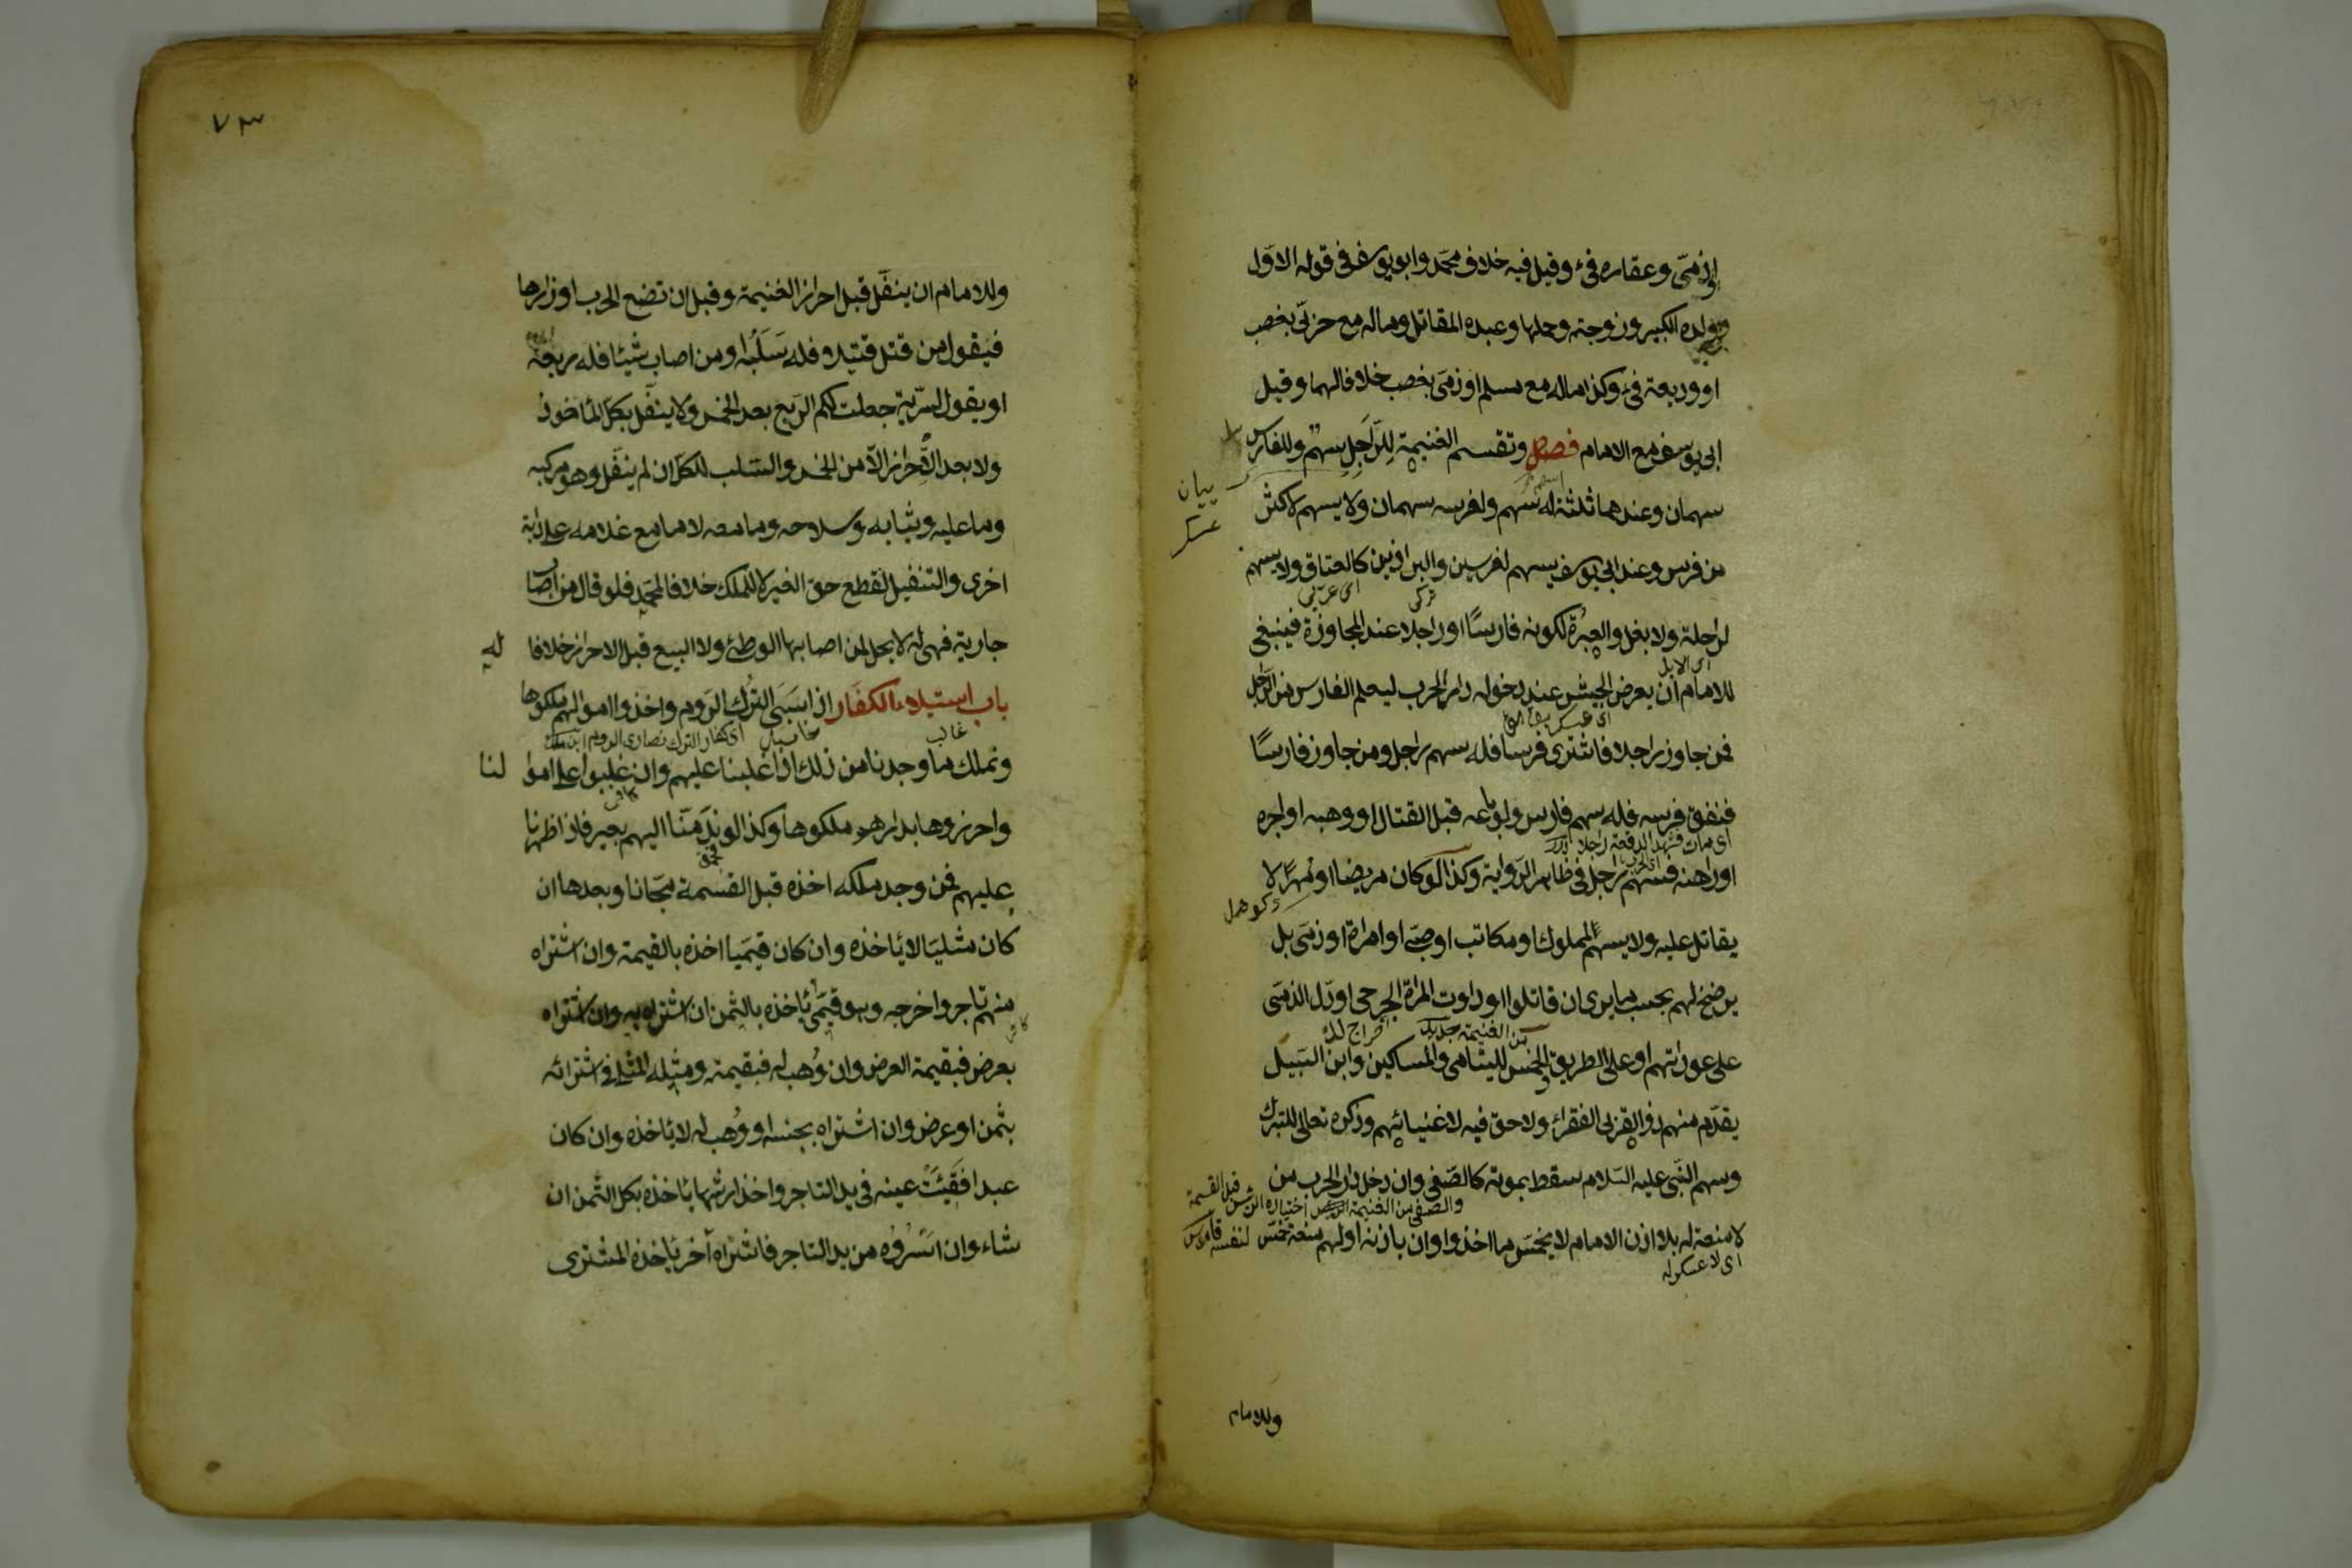 او ذمى وعقاره فئ وقيل فيه خلاف محمد وابو يوسف فى قوله الاول
وولده الكبير وزوجته وحملها وعبده المقاتل وماله مع حربى بغصب
او وديعة فئ وكذا ماله مع مسلم او ذمى بغصب خلافا لهما وقيل
ابى يوسف مع الامام فصل وتقسم الغنيمة للرّاجل سهم وللفارس
سهمان وعندهما ثلثة له سهم ولفرسه سهمان ولا يسهم لاكثر
بيان
عسكر
من فرس وعند ابى يوسف يسهم لفرسين والبراذين كالعتاق ولا يسهم
تركى
اى عربى
لراحلة ولا بغل والعبرة لكونه فارسًا او راجلا عند المجاوزة فينبغى
اى الابل
للامام ان يعرض الجيش عند دخوله دار الحرب ليعلم الفارس من الرّاجل
اى عسكر
فمن جاوز راجلا فاشترى فرسا فله سهم راجل ومن جاوز فارسًا
فنفق فرسه فله سهم فارس ولو باعه قبل القتال او وهبه او اجره
او رهنه فسهم راجل فى ظاهر الرّواية وكذا لو كان مريضا او مهرًا لا
يقاتل عليه ولا يسهم لمملوك او مكاتب او صبى او امراة او ذمى بل
يرضخ لهم بحسب ما يرى ان قاتلوا او داوت المراة الجرحى او دل الذمى
من الغنيمة
على عوراتهم او على الطريق والخمس لليتامى والمساكين وابن السبيل
يقدّم منهم ذوو القربى الفقراء ولا حق فيه لاغنيائهم وذكره تعالى للتبرك
وسهم النّبى عليه السّلام سقط بموته كالصّفى وان دخل دار الحرب من
والصفى من الغنيمة اختياره الرئيس قبل القسمة
لنفسه قاموس
لا منعة له بلا اذن الامام لا يخمّس ما اخذوا وان باذنه او لهم منعة خمّس
اى لا عسكر له
وللامام
٧٣
وللامام ان ينفّل قبل احراز الغنيمة وقبل ان تضع الحرب اوزارها
فيقول من قتل قتيلا فله سَلَبُه او من اصاب شيئا فله ربعه
او يقول لسّرية جعلت لكم الرّبع بعد الخمس ولا ينفّل بكلّ المأخوذ
ولا بعد الاحراز الاّ من الخمس والسّلب للكلّ ان لم ينفّل وهو مركبه
وما عليه وثيابه وسلاحه وما معه لا ما مع غلامه على دابة
اخرى والتنفيل لقطع حق الغير لا للملك خلافا لمحمد فلو قال من اصاب
جارية فهى له لا يحل لمن اصابها الوطئ ولا البيع قبل الاحراز خلافا له
باب استيلاء الكفّار اذا سَبَى التّرك الرّوم واخذوا اموالهم ملكوها
غالب
اى كفار الترك نصارى الروم ابن ملك
ونملك ما وجدنا من ذلك اذا غلبنا عليهم وان غلبوا على اموالنا
واحرزوها بدارهم ملكوها وكذا لو ندّ منّا اليهم بعير فاذا ظهرنا
عليهم فمن وجد ملكه اخذه قبل القسمة مجّانا وبعدها ان
كان مثليّا لا يأخذه وان كان قيميّا اخذه بالقيمة وان اشتراه
منهم تاجر واخرجه وهو قيمى يأخذه بالثّمن ان اشتراه به وان اشتراه
بعرض فبقيمة العرض وان وُهب له فبقيمته ومثله المثلى فى اشترائه
بثمن او عرض وان اشتراه بجنسه او وُهب له لا يأخذه وان كان
عبدا فقئت عينه فى يد التاجر واخذ ارشها يأخذه بكل الثّمن ان
شاء وان اَسَرُوه من يد التاجر فاشتراه آخر يأخذه المشترى